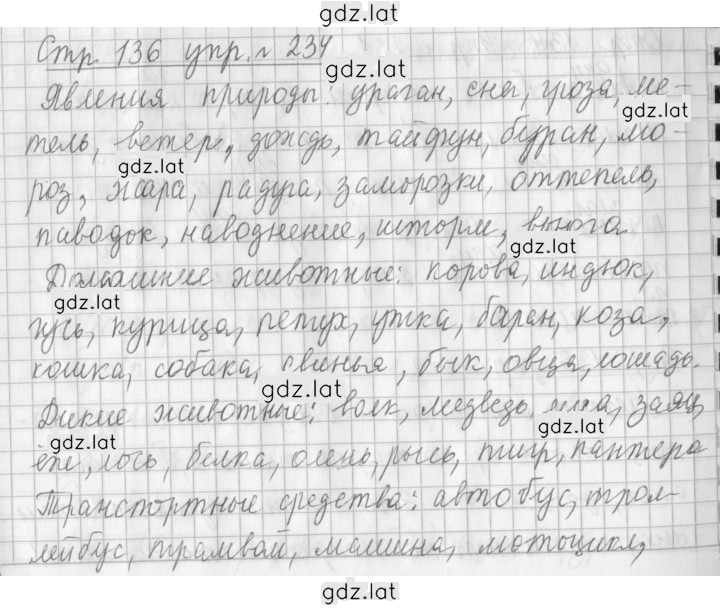 gdz.lat
Стр. 136 упр. № 234
gdz.lat
Явления природы: ураган, снег, гроза, ме-
gdz.lat
тель, ветер, дождь, тайфун, буран, мо-
gdz.lat
роз, жара, радуга, заморозки, оттепель,
паводок, наводнение, шторм, вьюга
gdz.lat
Домашние животные: корова, индюк,
gdz.lat
гусь, курица, петух, утка, баран, коза,
кошка, собака, свинья, бык, овца, лошадь.
gdz.lat
Дикие животные: волк, медведь, лиса, заяц,
gdz.lat
gdz.lat
ёж, лось, белка, олень, рысь, тигр, пантера
Транспортные средства: автобус, трол-
лейбус, трамвай, машина, мотоцикл,
gdz.lat